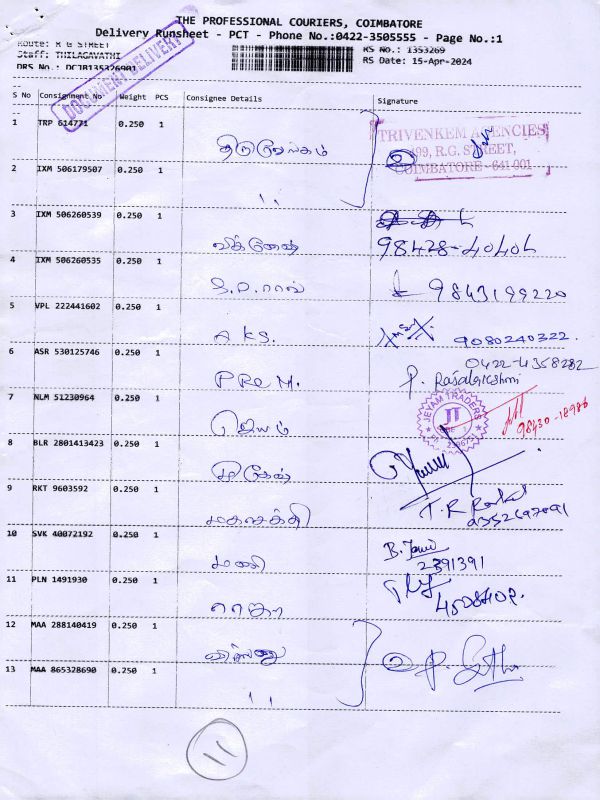 THE PROFESSIONAL COURIERS, COIMBATORE
Delivery Runsheet - PCT - Phone No.:0422-3505555 - Page No.:1
Route: R G STREET
Staff: THILAGAVATHI
RS No.: 1353269
DRS No.: DCJB135326901
RS Date: 15-Apr-2024
DOCUMENT DELIVERY
S No Consignment No Weight PCS Consignee Details Signature
1 TRP 614771 0.250 1
TRIVENKEM AGENCIES
R.G. STREET,
COIMBATORE - 641 001
2 IXM 506179507 0.250 1
3 IXM 506260539 0.250 1
விக்னேஷ் 98428-40404
4 IXM 506260535 0.250 1
S.P.ராஸ் 9843199220
5 VPL 222441602 0.250 1
AKS. 9080240322.
6 ASR 530125746 0.250 1
0422-4358282
PREM. P. Rasalakshmi
7 NLM 51230964 0.250 1
JEYAM TRADERS
JT
98430-18986
ஜெயம்
8 BLR 2801413423 0.250 1
9 RKT 9603592 0.250 1
மகாசக்தி T.R
10 SVK 40072192 0.250 1
மணி B.
2391391
11 PLN 1491930 0.250 1
ராஜா
12 MAA 288140419 0.250 1
விஷ்ணு
13 MAA 865328690 0.250 1
11